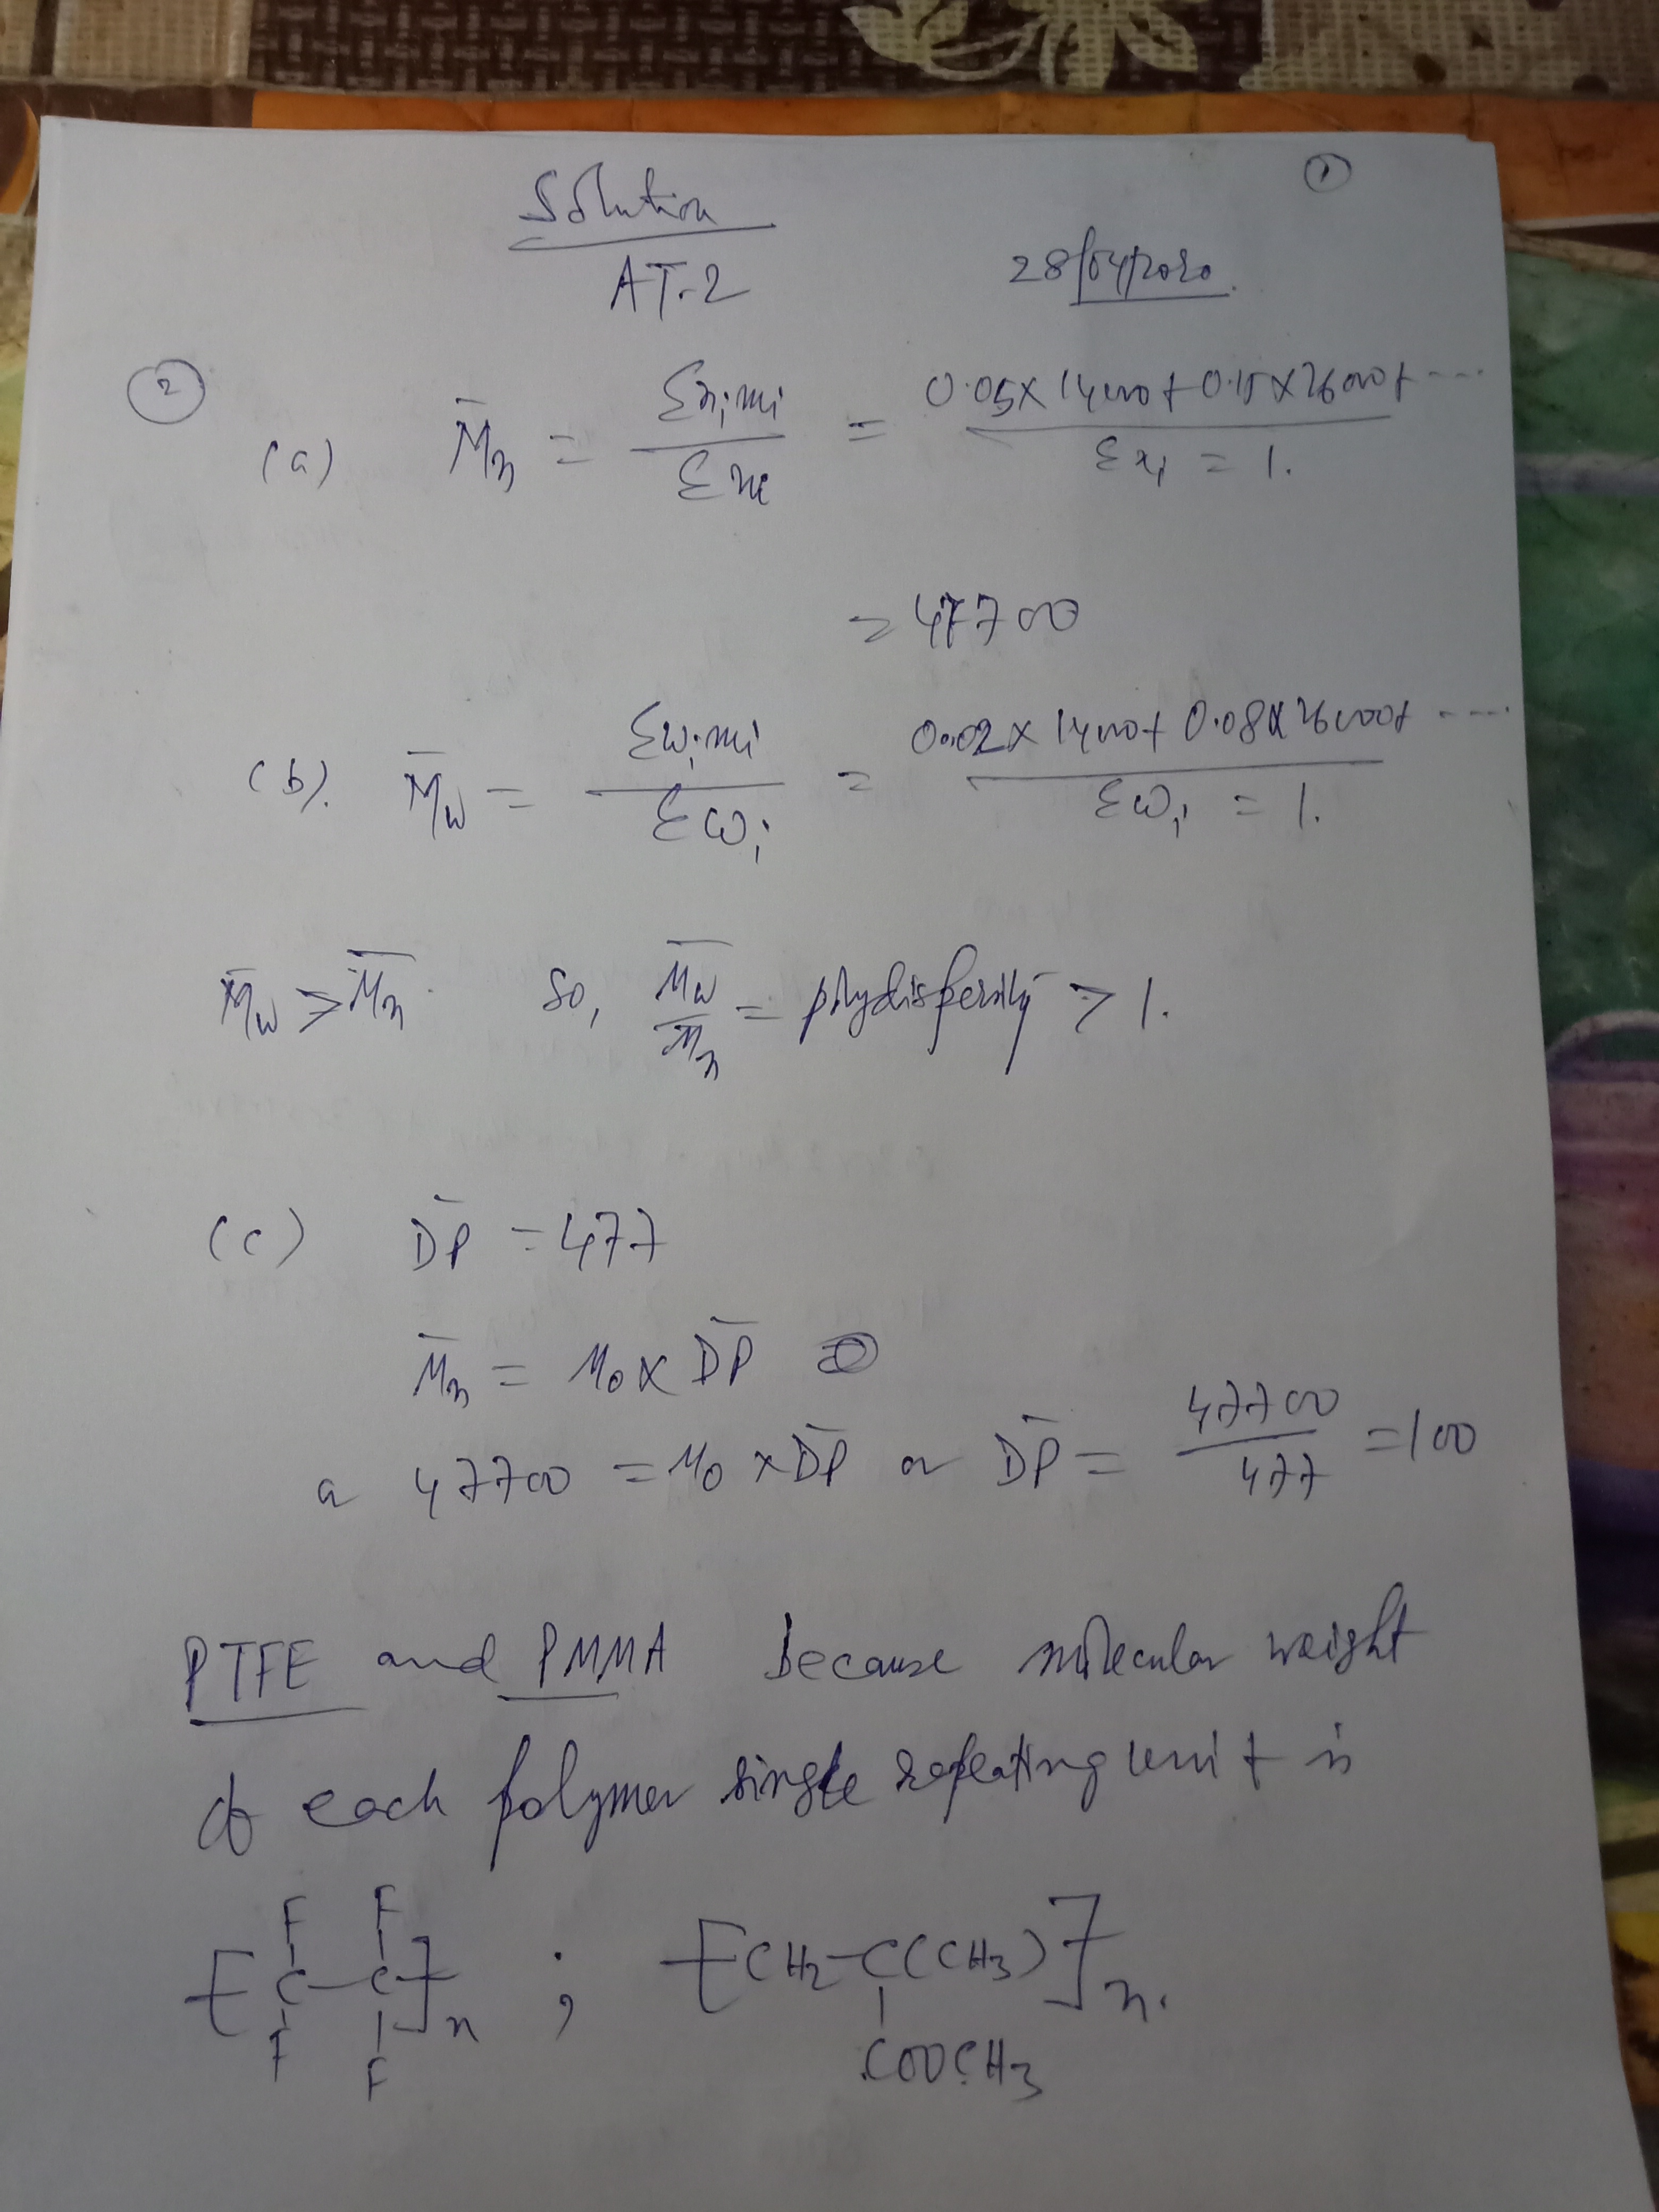 ①
Solution
AT-2
28/04/2020.
②
(a) M̄n = Σximi / Σxi = 0.05×14000+0.15×26000+.... / Σxi = 1.
= 47700
(b). M̄w = Σwimi / Σwi = 0.02×14000+0.08×26000+ ..... / Σwi = 1.
M̄w > M̄n. So, M̄w / M̄n = polydispersity > 1.
(c) D̄P = 477
M̄n = M0 × D̄P
or 47700 = M0 × D̄P or D̄P = 47700 / 477 = 100
PTFE and PMMA because molecular weight
of each polymer single repeating unit is
F F
[C–C]n ; [CH2–C(CH3)]n.
F F COOCH3